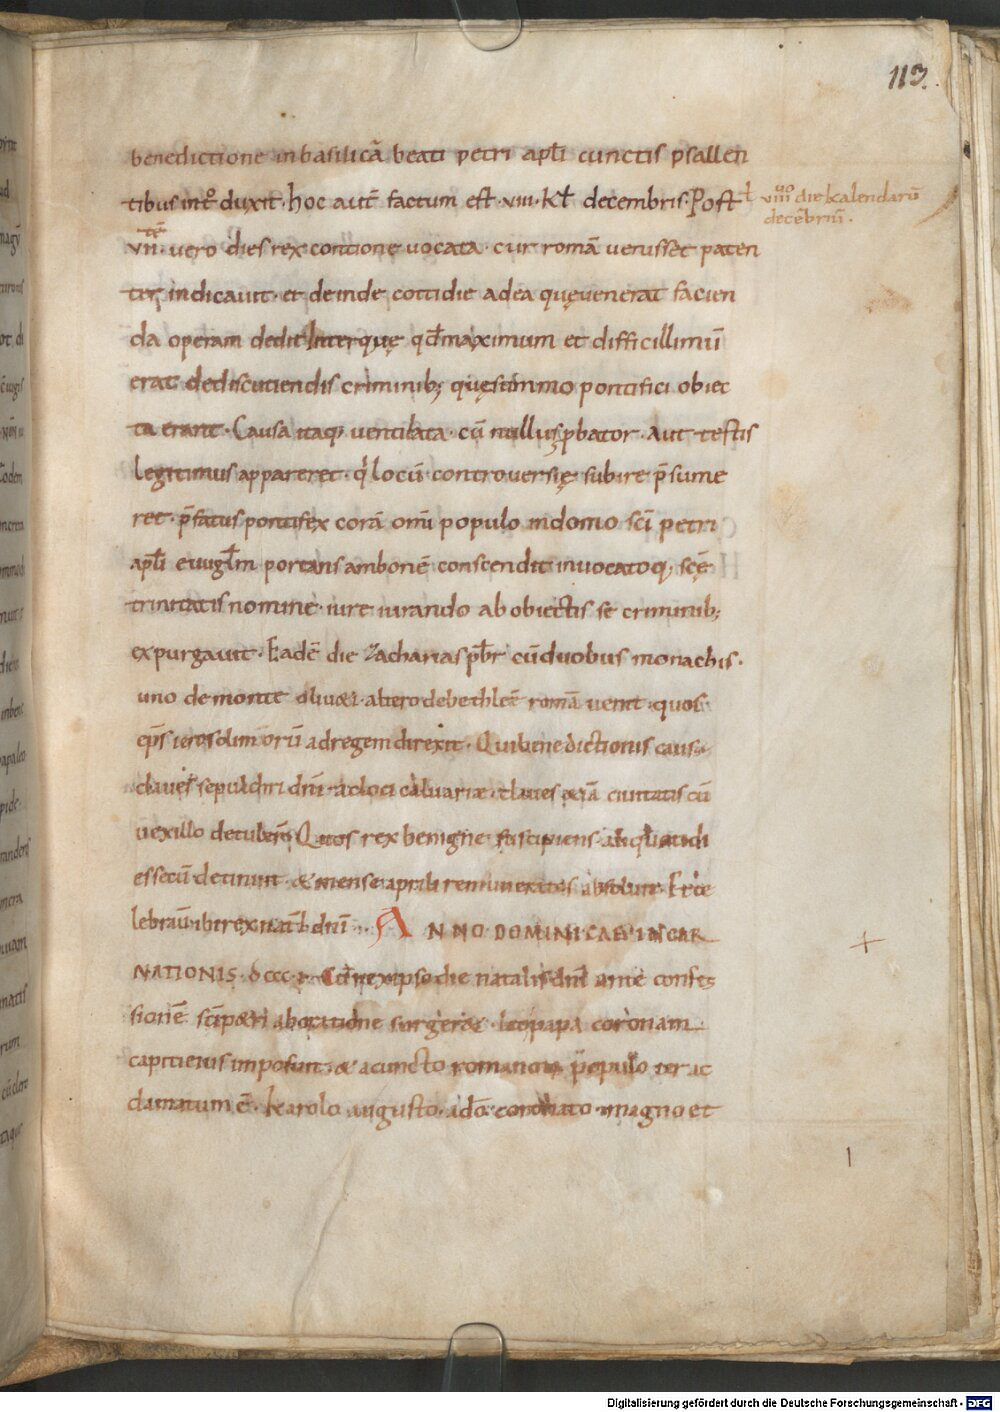 113.
benedictione in basilicā beati petri apłi cunctis psallen
tibus intͦ duxit. hoc aut̄ factum est .viii. kł decembris. Post
ł viii die kalendarū
decēbriū.
vii. vero dies rex contione uocata. cur romā uenisset paten
ter indicauit. et deinde cottidie ad ea quę uenerat facien
da operam dedit Inter quę qđ maximum et difficillimū
erat de discutiendis criminib; quę summo pontifici obiec
ta erant. Causa itaq; uentilata. cū nullus ꝓbator. aut testis
legitimus appareret. q̇ locū controuersię subire p̄sume
ret. p̄fatus pontifex corā omī populo in domo scī petri
apłi euuglm portans ambonē conscendit inuocatoq; scę̄
trinitatis nomine. iure iurando ab obiectis se criminib;
expurgauit. Eadē die Zacharias pb̄r cū duobus monachis.
uno de monte oliueti. altero de bethleē romā uenit. quos
ep̄s ierosolimorū ad regem direxit. Qui benedictionis causa
claues sepulchri dn̄i ac loci caluariæ. claues etiā ciuitatis cū
uexillo detulerū Quos rex benigne suscipiens. aliqandi
essecū detinuit. & mense aprili remuneratos absoluit. Et ce
lebrauit ibi rex natał dn̄i. ANNO DOMINICAE INCAR
NATIONIS. dccc.i. Cū rex ipso die natalis dn̄i ante confes
sionē scī petri ab oratione surgeret. leo papa coronam
capiti eius imposuit. & a cuncto romanorū populo ter ac
clamatum ē. karolo augusto. a dō coronato magno et